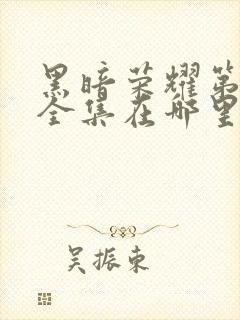 黑暗荣耀第
全集在哪里
吴振东